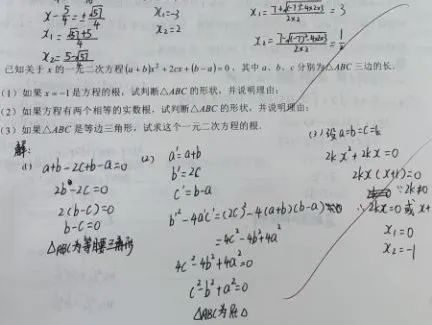 x - 5/4 = ±√57/4
x₁ = (√57+5)/4
x₂ = (5-√57)/4
x₁=-3
x₂=2
x₁ = (7+√((-7)²-4×2×3))/(2×2) = 3
x₂ = (7-√((-7)²-4×2×3))/(2×2) = 1/2
已知关于x的一元二次方程(a+b)x²+2cx+(b-a)=0，其中a、b、c分别为△ABC三边的长.
(1) 如果x=-1是方程的根，试判断△ABC的形状，并说明理由；
(2) 如果方程有两个相等的实数根，试判断△ABC的形状，并说明理由；
(3) 如果△ABC是等边三角形，试求这个一元二次方程的根.
解:
(1) a+b-2c+b-a=0
2b-2c=0
2(b-c)=0
b-c=0
△ABC为等腰三角形
(2) a'=a+b
b'=2c
c'=b-a
b'²-4a'c'=(2c)²-4(a+b)(b-a)=0
=4c²-4b²+4a²
4c²-4b²+4a²=0
c²-b²+a²=0
△ABC为Rt△
(3) 设a=b=c=k
2kx²+2kx=0
2kx(x+1)=0
∵2k≠0
∴2kx=0 或 x+
x₁=0
x₂=-1